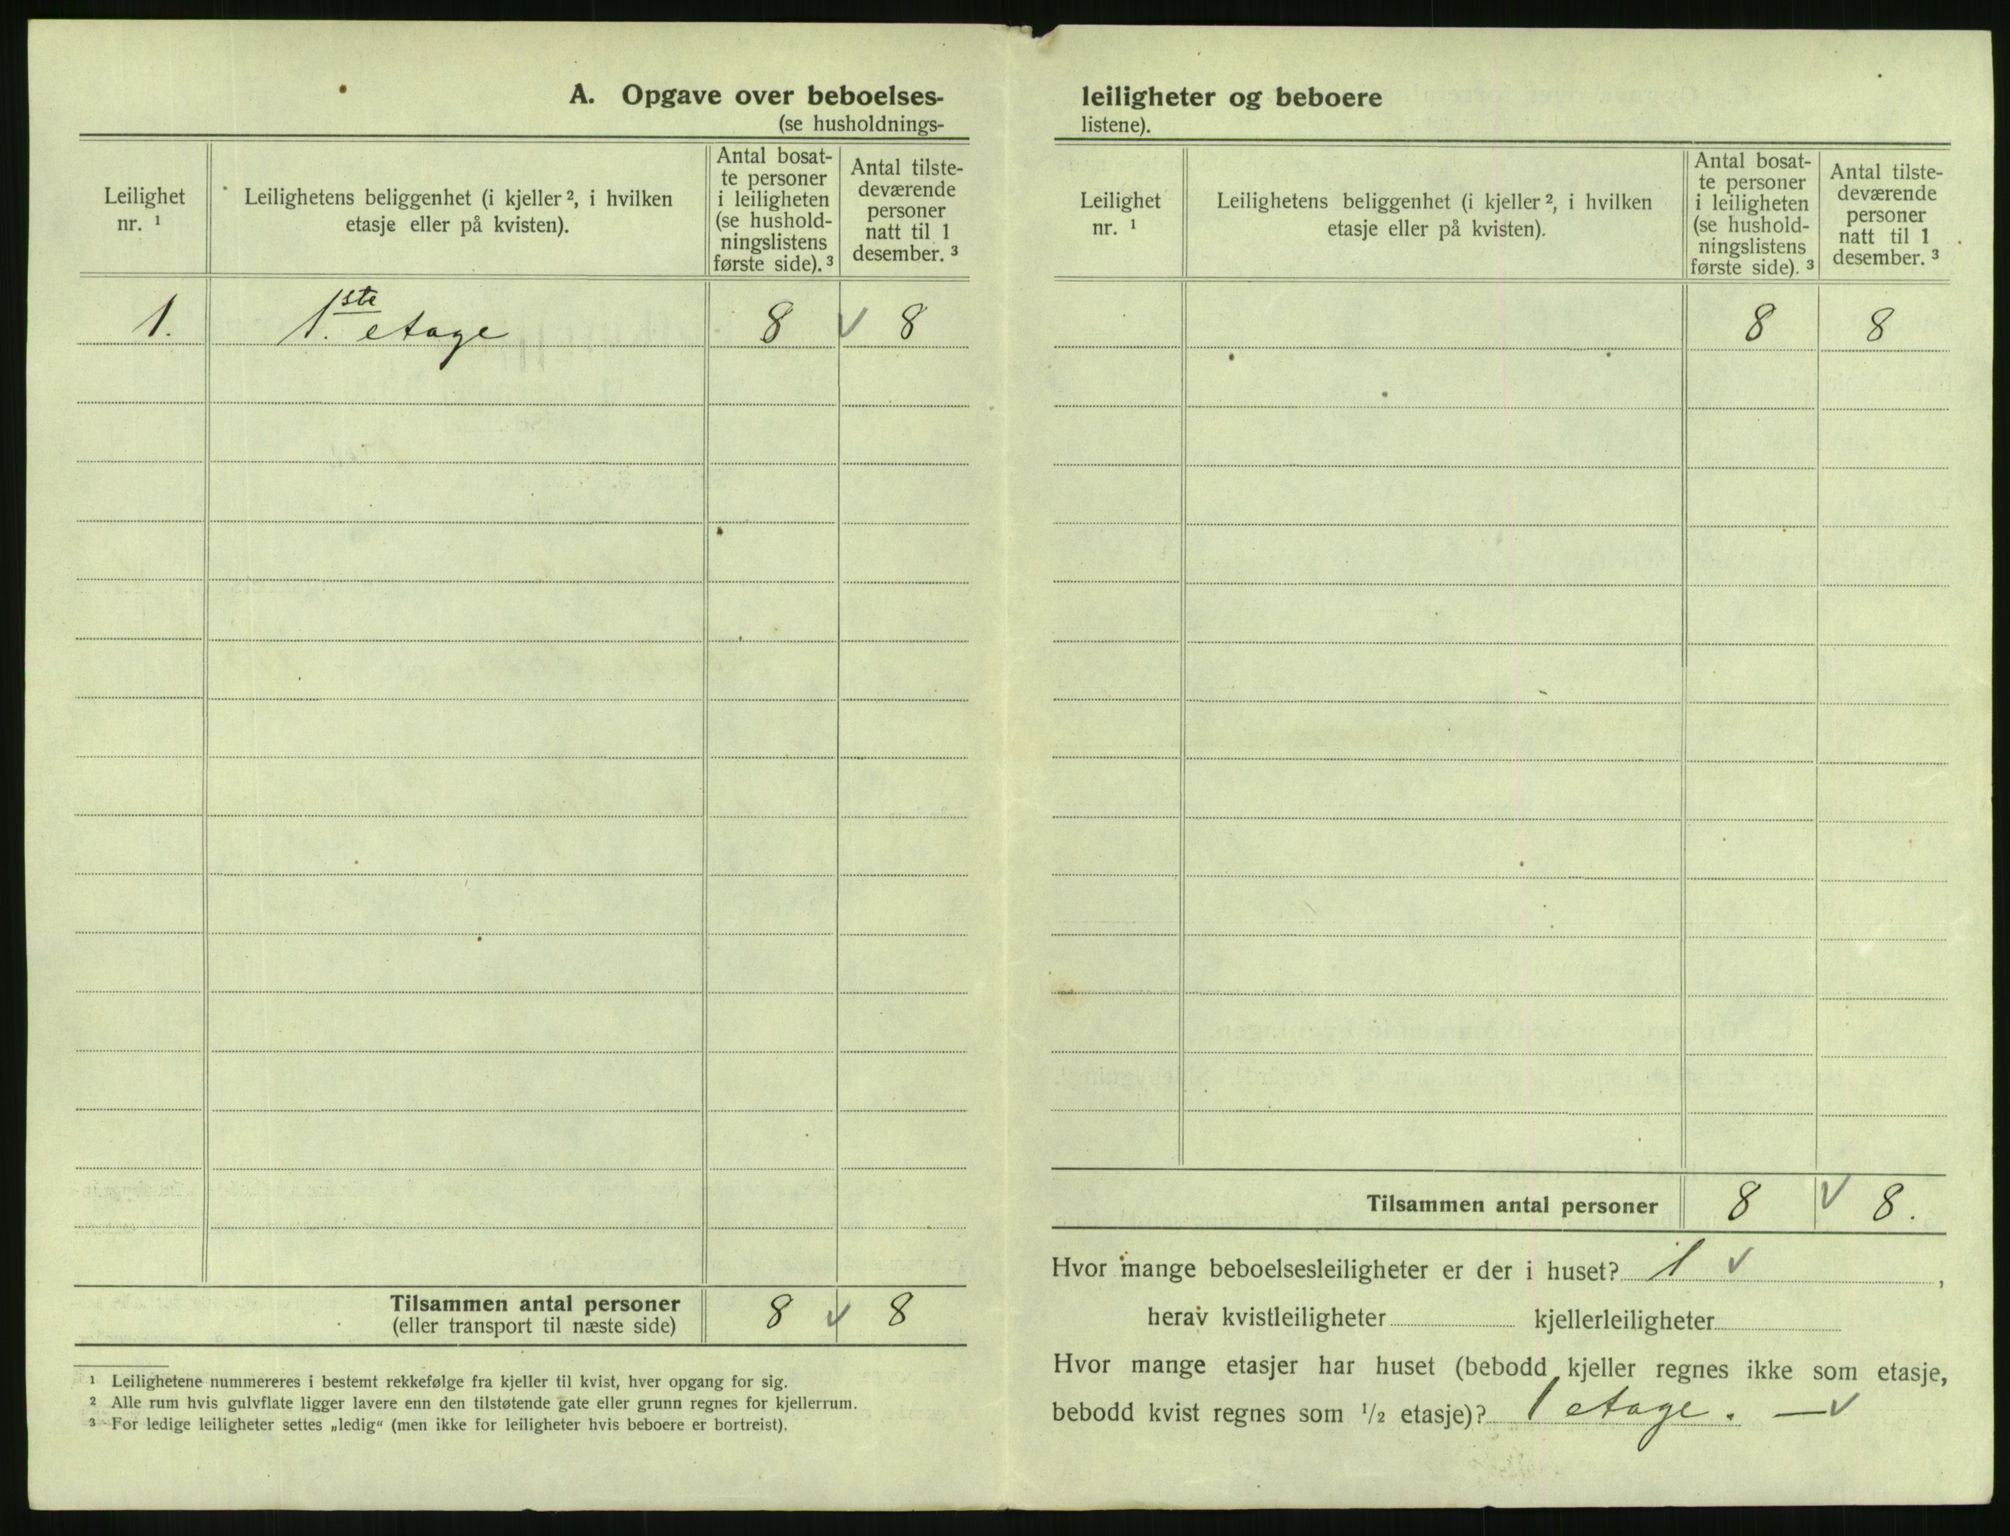 A. Opgave over beboelses-
(se husholdnings-
Leilighet
nr. ¹
Leilighetens beliggenhet (i kjeller ², i hvilken
etasje eller på kvisten).
Antal bosat-
te personer
i leiligheten
(se hushold-
ningslistens
første side). ³
Antal tilste-
deværende
personer
natt til 1
desember. ³
1. 1.ste etage 8 √ 8
Tilsammen antal personer 8 √ 8
(eller transport til næste side)
¹ Leilighetene nummereres i bestemt rekkefølge fra kjeller til kvist, hver opgang for sig.
² Alle rum hvis gulvflate ligger lavere enn den tilstøtende gate eller grunn regnes for kjellerrum.
³ For ledige leiligheter settes „ledig“ (men ikke for leiligheter hvis beboere er bortreist).
leiligheter og beboere
listene).
Leilighet
nr. ¹
Leilighetens beliggenhet (i kjeller ², i hvilken
etasje eller på kvisten).
Antal bosat-
te personer
i leiligheten
(se hushold-
ningslistens
første side). ³
Antal tilste-
deværende
personer
natt til 1
desember. ³
8 8
Tilsammen antal personer 8 √ 8.
Hvor mange beboelsesleiligheter er der i huset? 1 √ ,
herav kvistleiligheter kjellerleiligheter
Hvor mange etasjer har huset (bebodd kjeller regnes ikke som etasje,
bebodd kvist regnes som ½ etasje)? 1 etage. — √